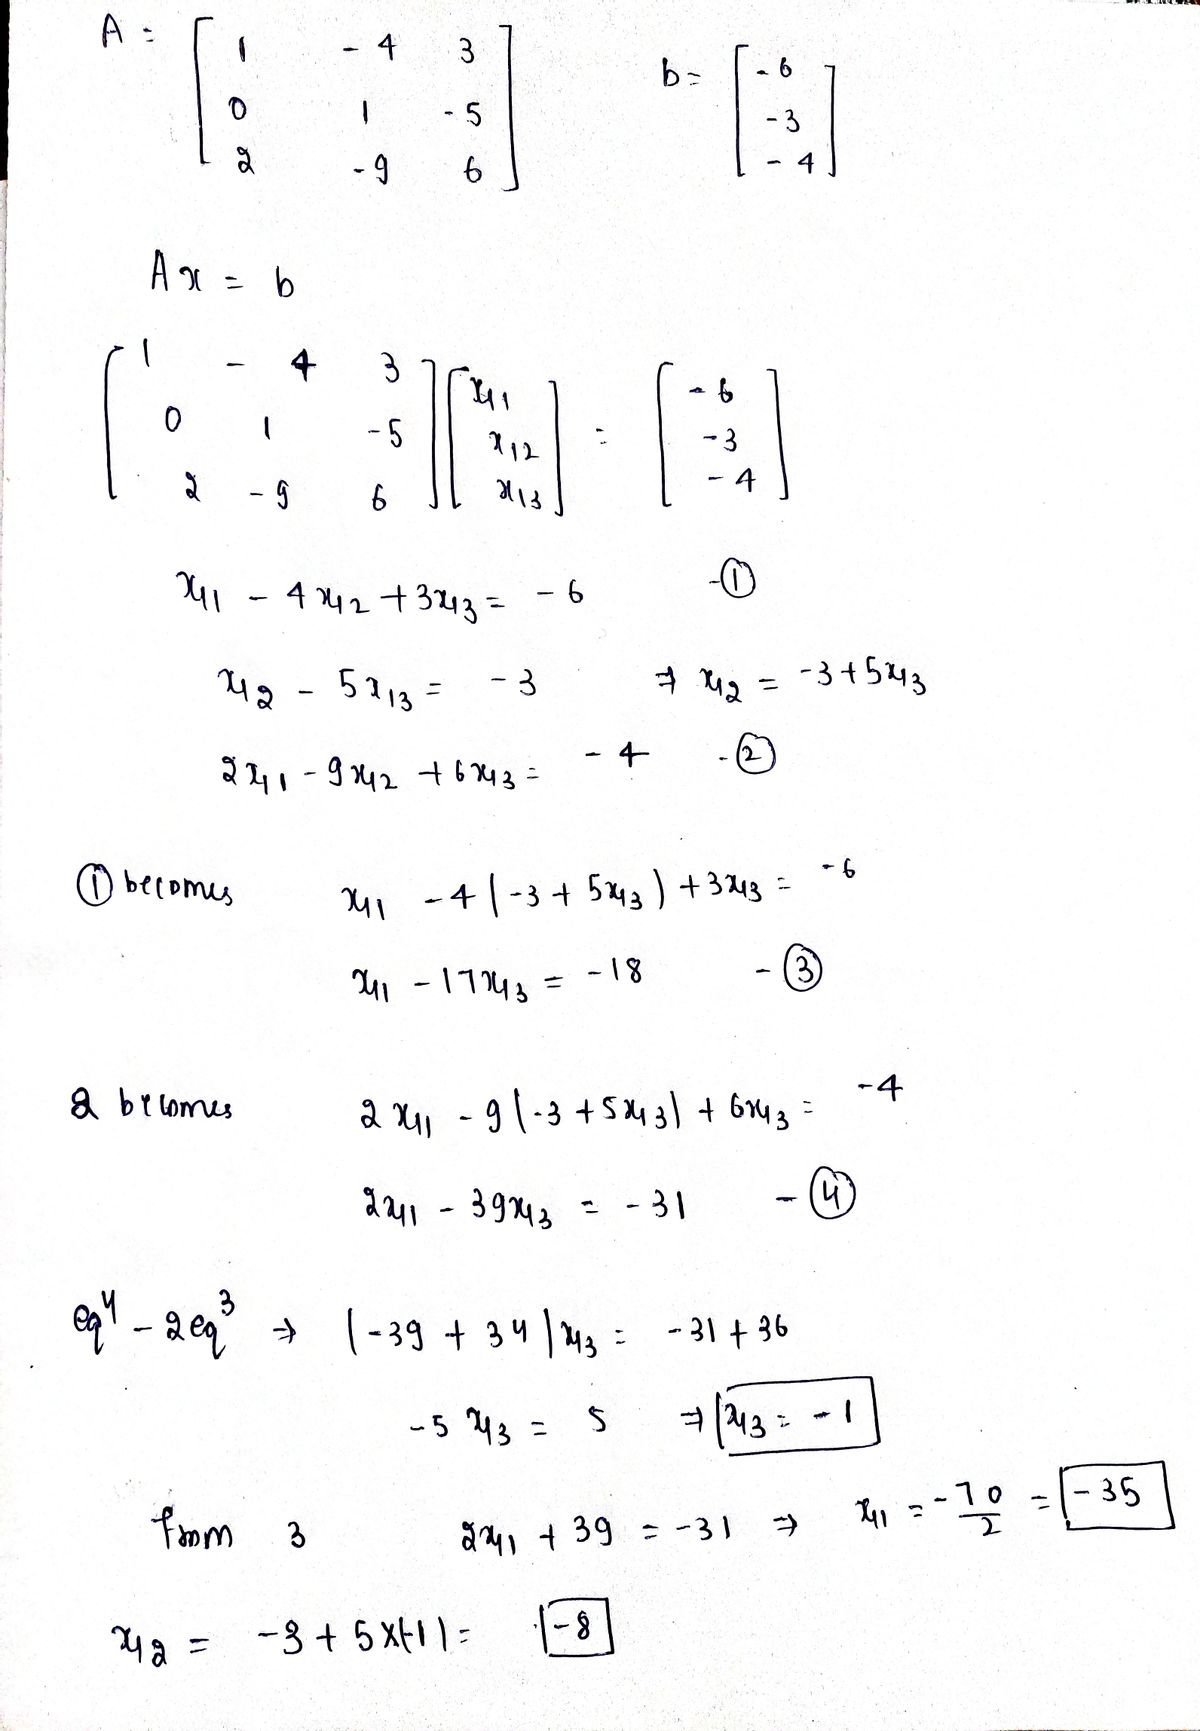 A = [ 1 -4 3
0 1 -5
2 -9 6 ]
b = [ -6
-3
-4 ]
Ax = b
[ 1 -4 3
0 1 -5
2 -9 6 ] [ x11
x12
x13 ] = [ -6
-3
-4 ]
x11 - 4x12 + 3x13 = -6 - ①
x12 - 5x13 = -3 ⇒ x12 = -3 + 5x13
2x11 - 9x12 + 6x13 = -4 - ②
① becomes x11 - 4(-3 + 5x13) + 3x13 = -6
x11 - 17x13 = -18 - ③
2 becomes 2x11 - 9(-3 + 5x13) + 6x13 = -4
2x11 - 39x13 = -31 - ④
eq4 - 2eq3 ⇒ (-39 + 34)x13 = -31 + 36
-5x13 = 5 ⇒ x13 = -1
from 3 2x11 + 39 = -31 ⇒ x11 = -70/2 = -35
x12 = -3 + 5×(-1) = -8